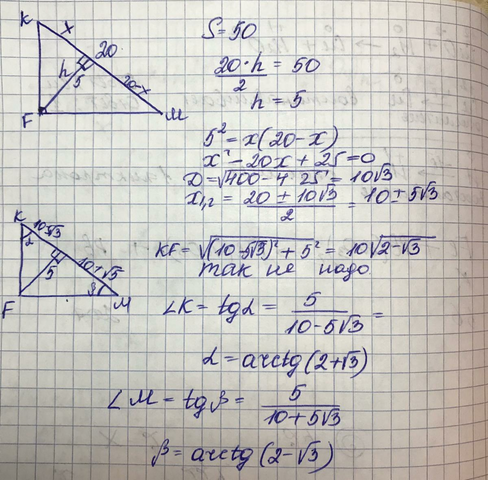 K
x
20
h
5
20-x
F
M
S = 50
20·h / 2 = 50
h = 5
5² = x(20-x)
x² - 20x + 25 = 0
D = √400 - 4·25 = 10√3
x₁,₂ = (20 ± 10√3) / 2 = 10 ± 5√3
K
10-5√3
α
5
10+√5
β
F
M
KF = √((10-5√3)² + 5²) = 10√(2-√3)
так не надо
∠K = tgα = 5 / (10-5√3) =
α = arctg(2+√3)
∠M = tgβ = 5 / (10+5√3)
β = arctg(2-√3)